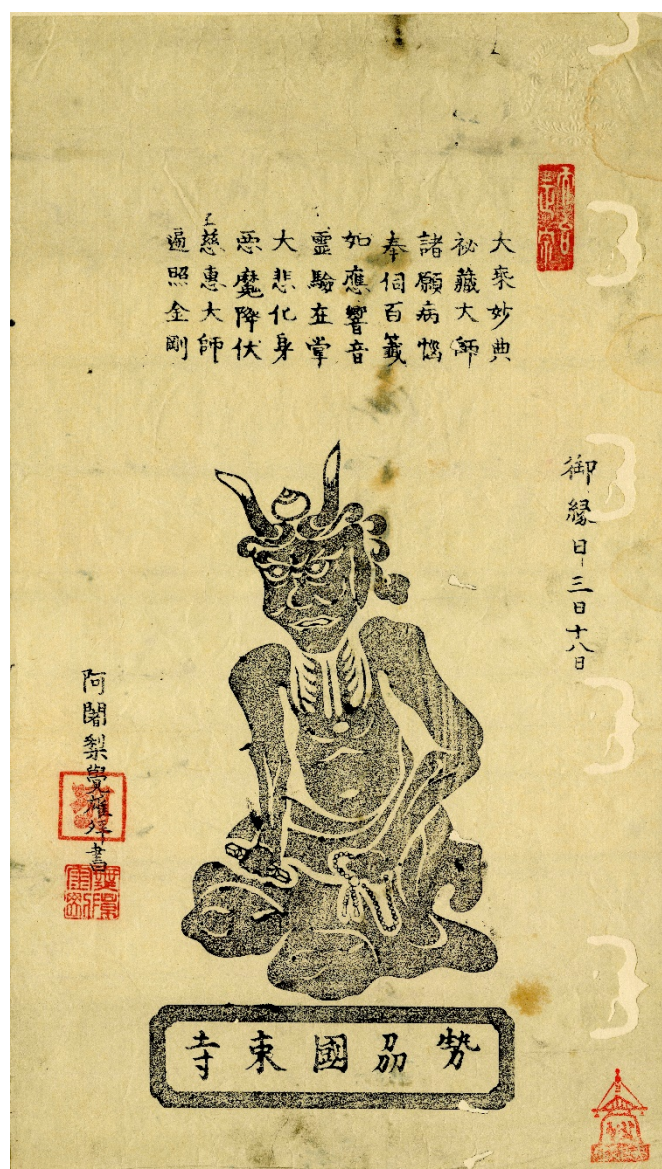 大乘妙典
秘藏大師
諸願病惱
奉伺百籤
如應響音
靈驗在掌
大悲化身
悪魔降伏
慈惠大師
遍照金剛
御縁日三日十八日
阿闍梨覺
書
勢刕國束寺